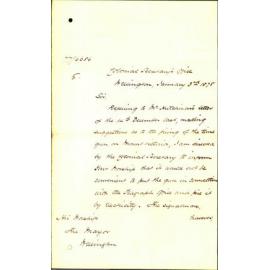 Colonial Secretary's Office
Wellington, January 3rd 1878
Sir
Referring to Mr McKerrow's letter
of the December last, making
suggestions as to the firing of the time
gun on Mount Victoria, I am directed
by the Colonial Secretary to inform
Your Worship that it would not be
convenient to put the gun in connection
with the Telegraph Office and fire it
by electricity. The signalman
His Worship
The Mayor
Wellington